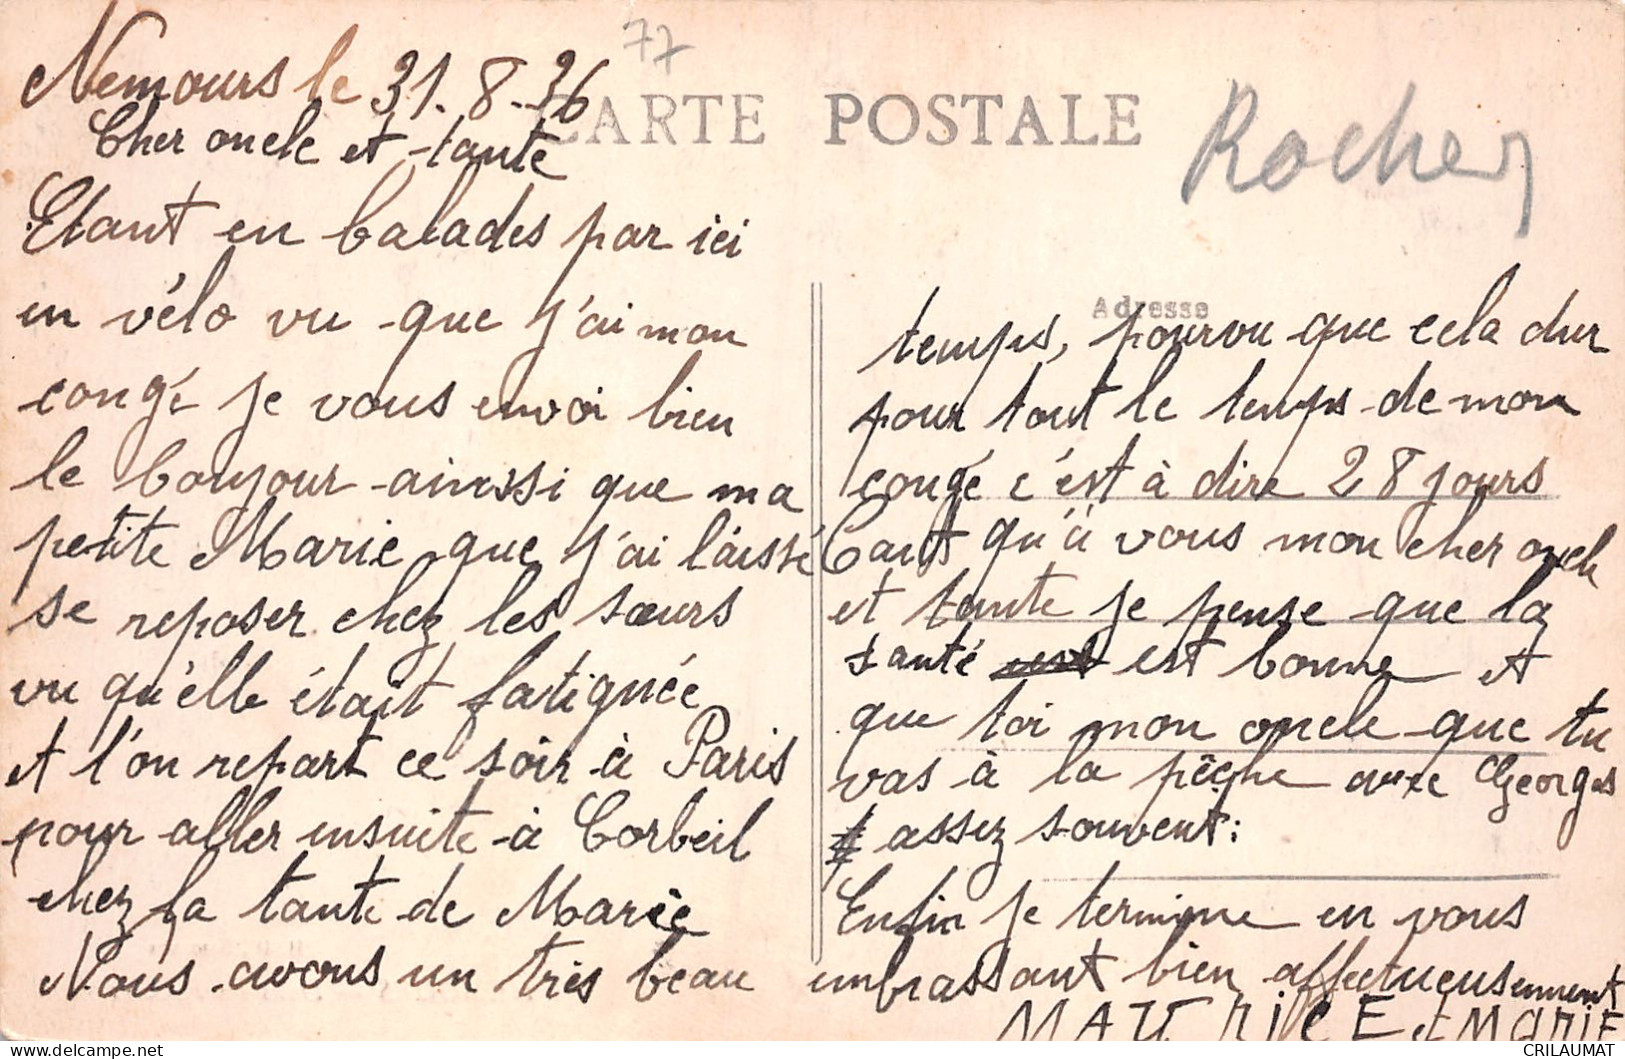 77
Nemours le 31.8.36
CARTE POSTALE
Rocher
Cher oncle et tante
Etant en balades par ici
en vélo vu que j'ai mon
congé je vous envoi bien
le bonjour ainssi que ma
petite Marie que j'ai laissé
se reposer chez les sœurs
vu qu'elle était fatiguée
et l'on repart ce soir à Paris
pour aller ensuite à Corbeil
chez la tante de Marie
Nous avons un très beau
Adresse
temps, pourvu que cela dur
pour tout le temps de mon
congé c'est à dire 28 jours
Cant qu'à vous mon cher oncle
et tante je pense que la
santé est bonne et
que toi mon oncle que tu
vas à la pêche avec Georges
assez souvent:
Enfin je termine en vous
embrassant bien affectueusement
MAURICE et MARIE
CRILAUMAT